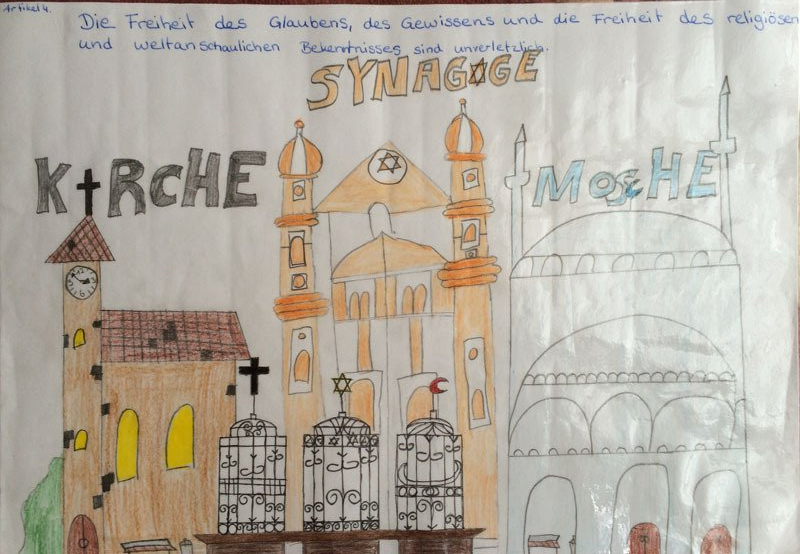 Artikel 4.
Die Freiheit des Glaubens, des Gewissens und die Freiheit des religiösen
und weltanschaulichen Bekenntnisses sind unverletzlich.
SYNAGOGE
KIRCHE
MOSCHEE